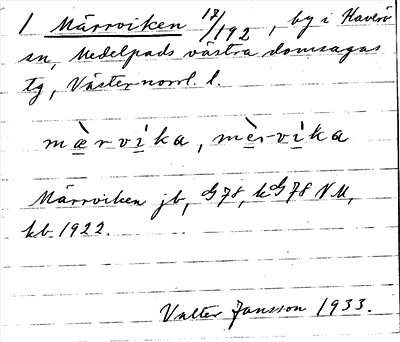 1 Märrviken 17/192, by i Haverö
sn, Medelpads västra domsagas
tg, Västernorrl. l.
mæ̀rvìka, mèrvìka
Märrviken jb, G78, kG78 NV,
kb 1922.
Valter Jansson 1933.